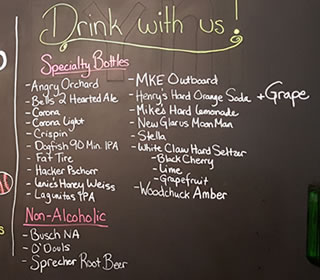 Drink with us!
Specialty Bottles
- Angry Orchard
- Bell's 2 Hearted Ale
- Corona
- Corona Light
- Crispin
- Dogfish 90 Min. IPA
- Fat Tire
- Hacker Pschorr
- Leinie's Honey Weiss
- Lagunitas IPA
- MKE Outboard
- Henry's Hard Orange Soda + Grape
- Mike's Hard Lemonade
- New Glarus Moon Man
- Stella
- White Claw Hard Seltzer
- Black Cherry
- Lime
- Grapefruit
- Woodchuck Amber
Non-Alcoholic
- Busch NA
- O'Douls
- Sprecher Root Beer